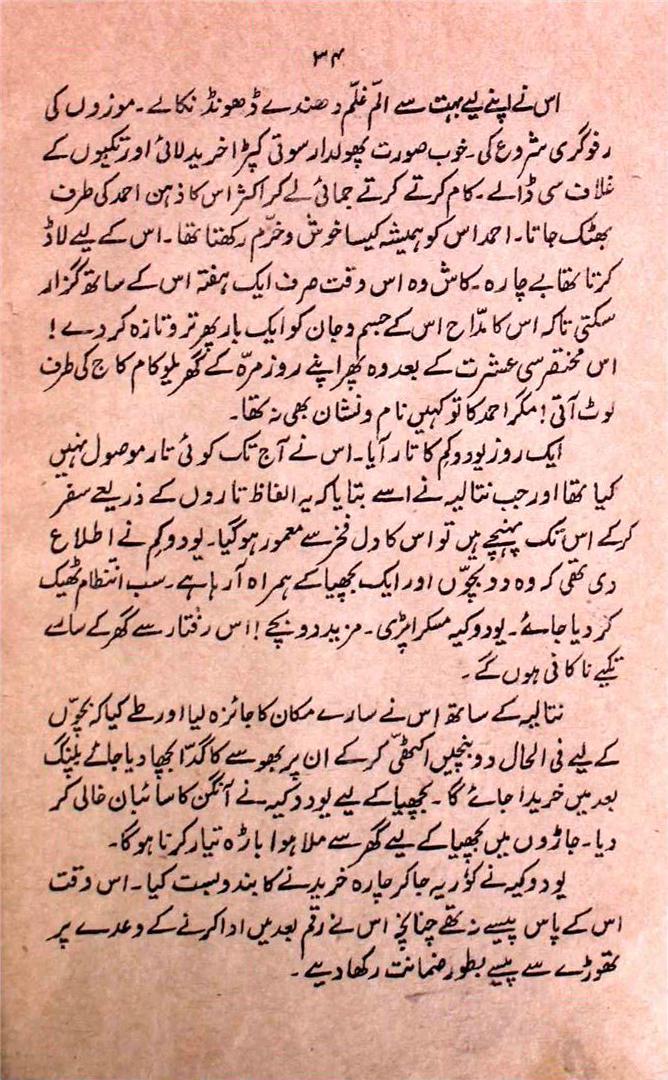 ۳۴
اس نے اپنے لیے بہت سے الّم غلّم دھندے ڈھونڈ نکالے۔ موزوں کی
رفوگری شروع کی۔ خوب صورت پھولدار سوتی کپڑا خرید لائی اور تکیوں کے
غلاف سی ڈالے۔ کام کرتے کرتے جمائی لے کر اکثر اس کا ذہن احمد کی طرف
بھٹک جاتا۔ احمد اس کو ہمیشہ کیسا خوش و خرّم رکھتا تھا۔ اس کے لیے لاڈ
کرتا تھا بے چارہ۔ کاش وہ اس وقت صرف ایک ہفتہ اس کے ساتھ گزار
سکتی تاکہ اس کا مدّاح اس کے جسم و جان کو ایک بار پھر تر و تازہ کر دے!
اس مختصر سی عشرت کے بعد وہ پھر اپنے روز مرّہ کے گھریلو کام کاج کی طرف
لوٹ آتی! مگر احمد کا تو کہیں نام و نشان بھی نہ تھا۔
ایک روز یودوکم کا تار آیا۔ اس نے آج تک کوئی تار موصول نہیں
کیا تھا اور جب نتالیہ نے اسے بتایا کہ یہ الفاظ تاروں کے ذریعے سفر
کرکے اس تک پہنچے ہیں تو اس کا دل فخر سے معمور ہو گیا۔ یودوکم نے اطلاع
دی تھی کہ وہ دو بچّوں اور ایک بچھیا کے ہمراہ آ رہا ہے۔ سب انتظام ٹھیک
کر دیا جائے۔ یودوکیہ مسکرا پڑی۔ مزید دو بچے! اس رفتار سے گھر کے سارے
تکیے ناکافی ہوں گے۔
نتالیہ کے ساتھ اس نے سارے مکان کا جائزہ لیا اور طے کیا کہ بچّوں
کے لیے فی الحال دو بنچیں اکٹھی کرکے ان پر بھوسے کا گدّا بچھا دیا جائے پلنگ
بعد میں خریدا جائے گا۔ بچھیا کے لیے یودوکیہ نے آنگن کا سائبان خالی کر
دیا۔ جاڑوں میں بچھیا کے لیے گھر سے ملا ہوا باڑہ تیار کرنا ہوگا۔
یودوکیہ نے کوُریہ جا کر چارہ خریدنے کا بندوبست کیا۔ اس وقت
اس کے پاس پیسے نہ تھے چنانچہ اس نے رقم بعد میں ادا کرنے کے وعدے پر
تھوڑے سے پیسے بطور ضمانت رکھا دیے۔